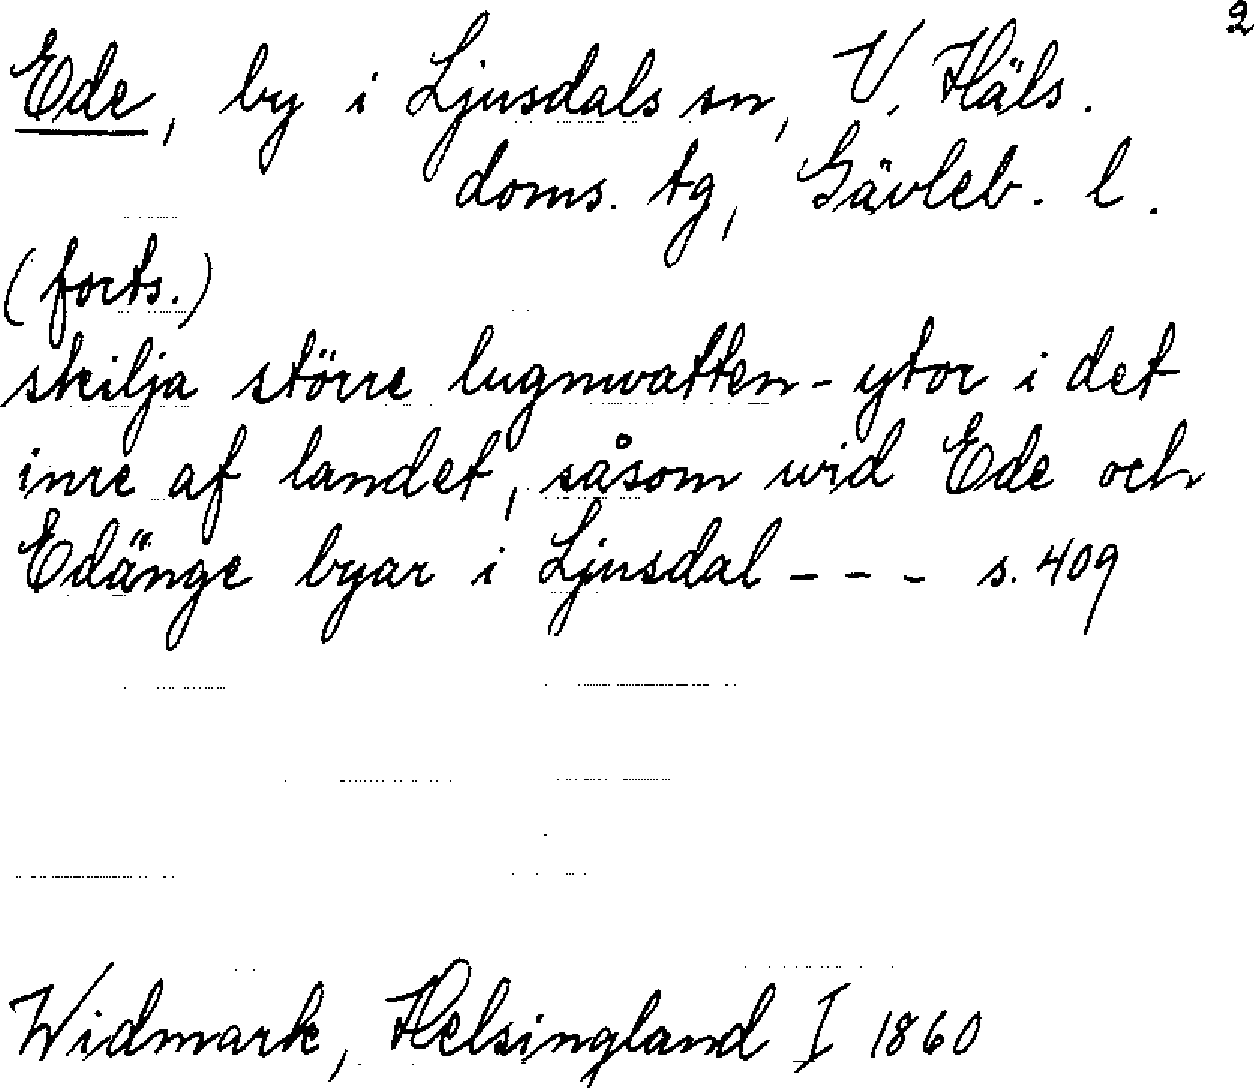 2
Ede, by i Ljusdals sn, V. Häls.
doms. tg, Gävleb. l.
(forts.)
skilja större lugnwatten-ytor i det
inre af landet, såsom wid Ede och
Edänge byar i Ljusdal - - - s. 409
Widmark, Helsingland I 1860